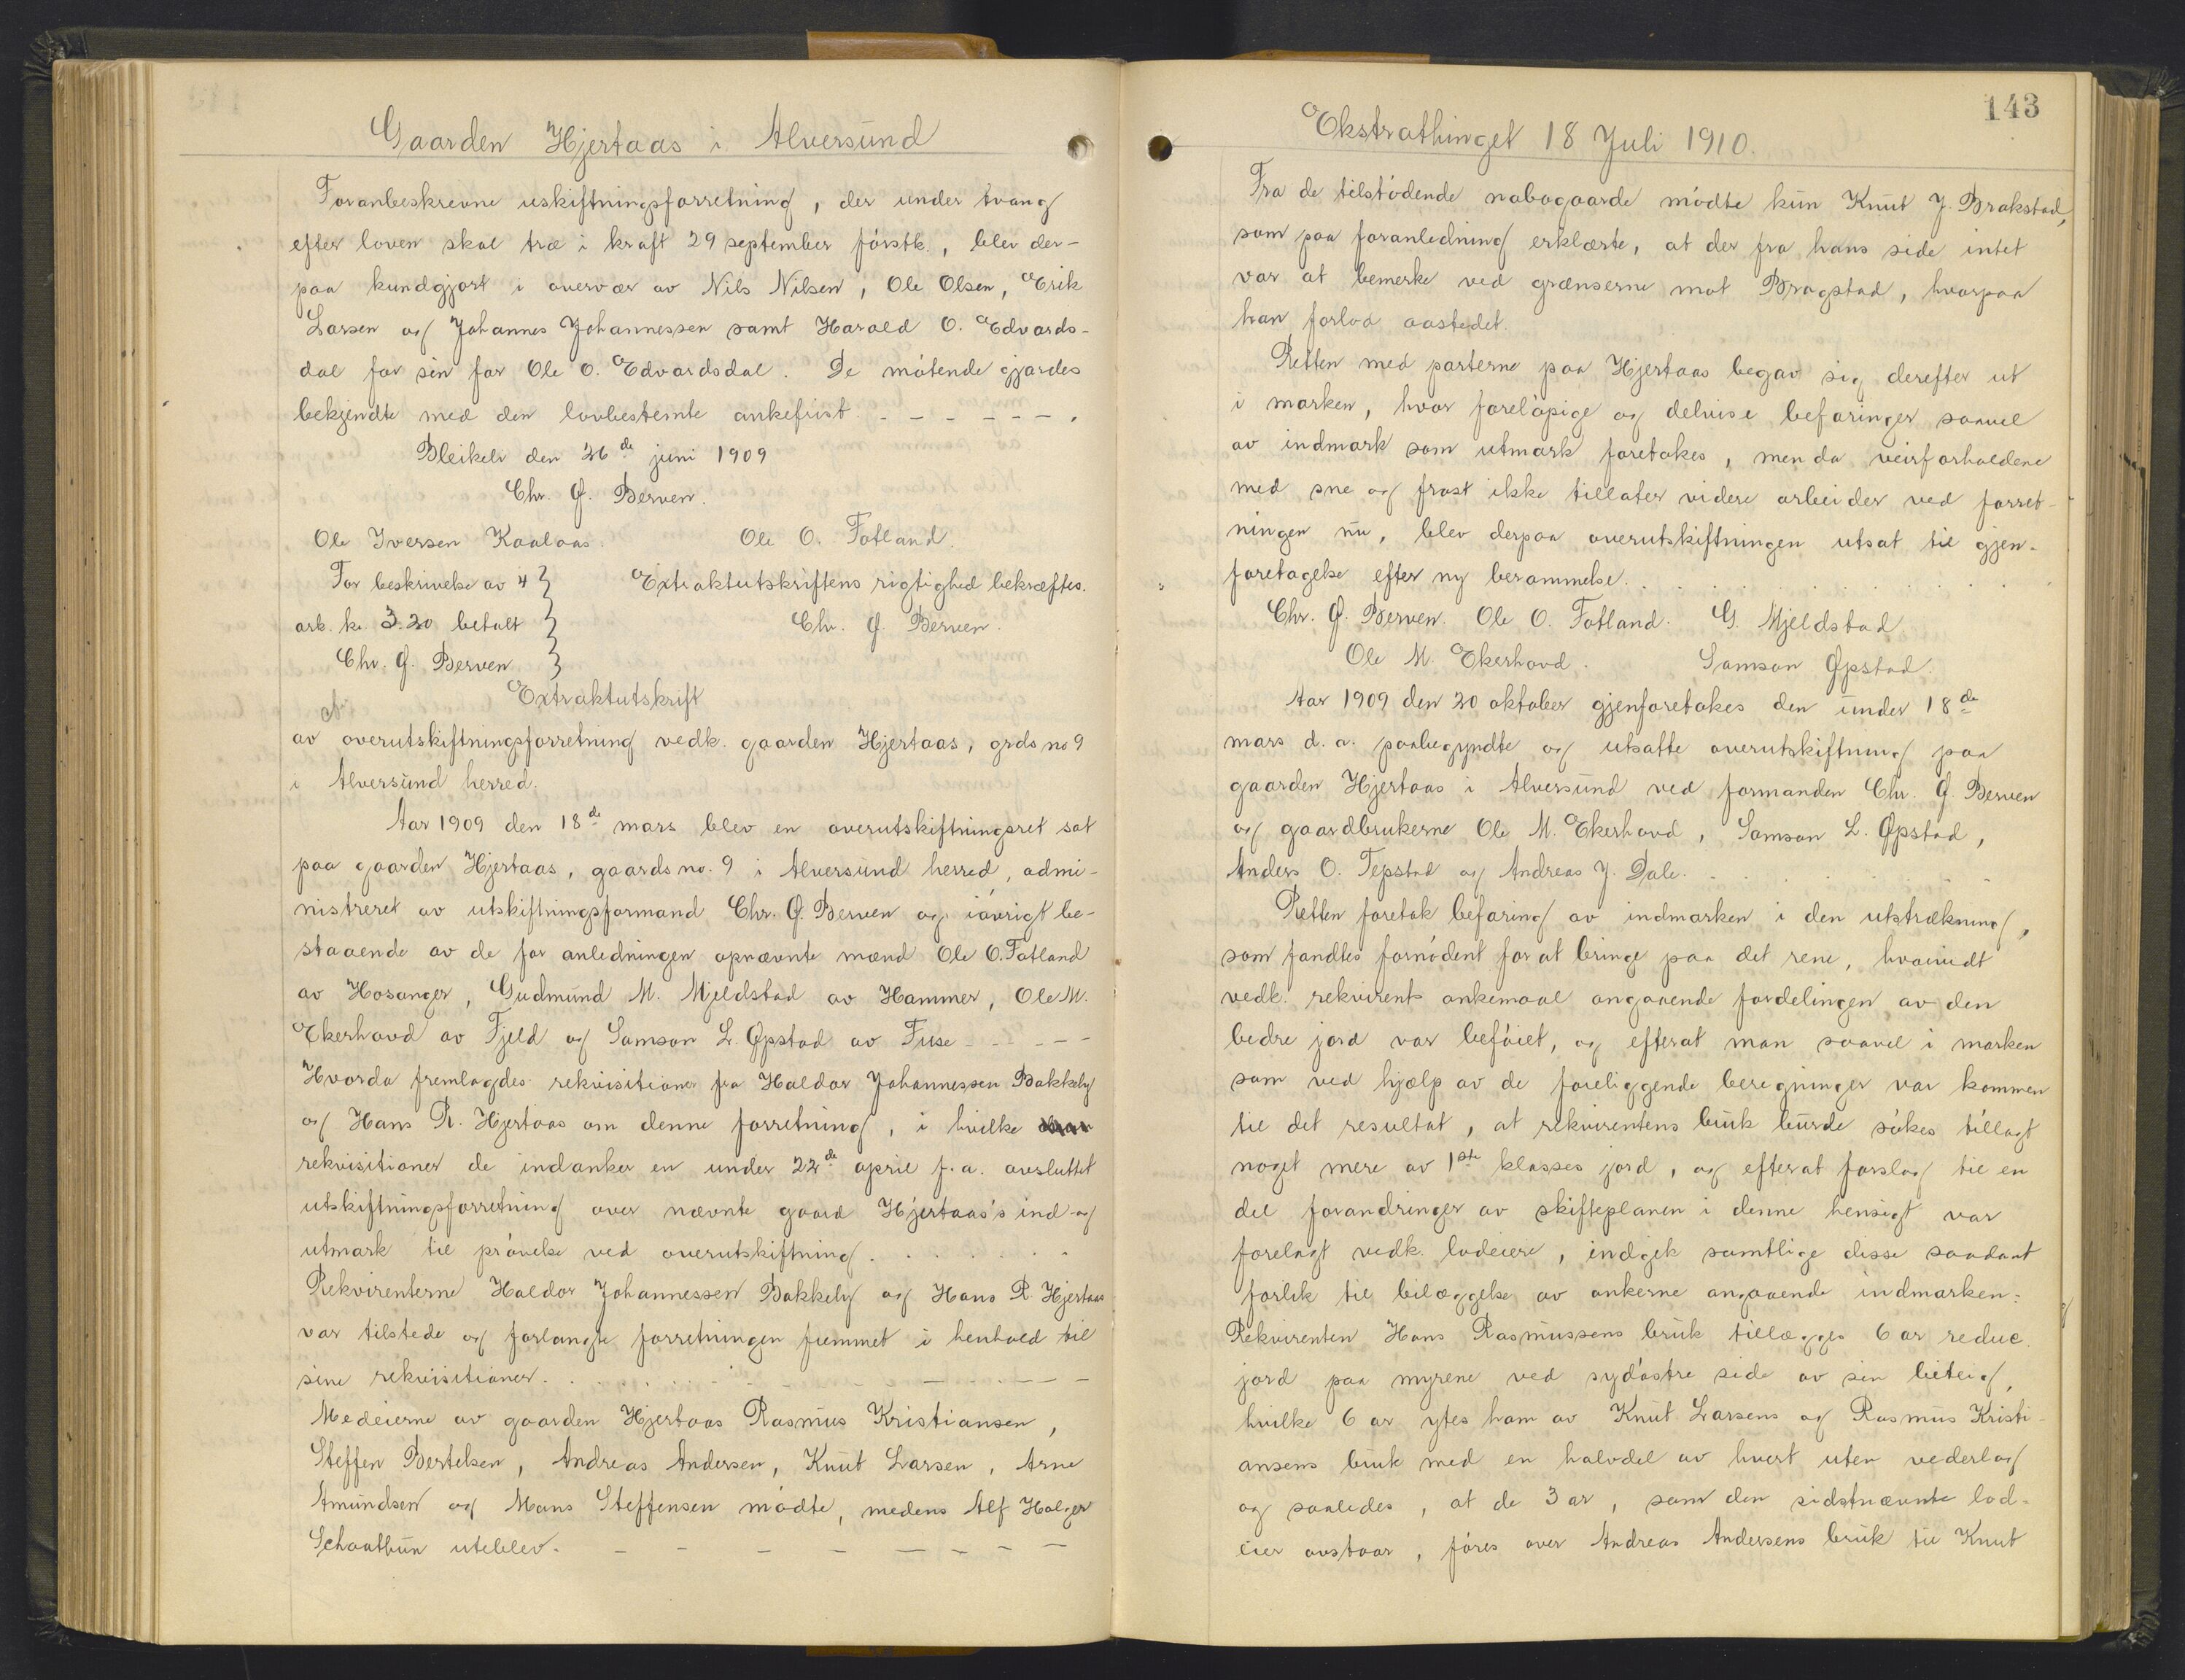 Gaarden Hjertaas i Alversund
Foranbeskrevne uskiftningsforretning, der under tvang
efter loven skal træ i kraft 29 september førstk., blev der-
paa kundgjort i overvær av Nils Nilsen, Ole Olsen, Erik
Larsen og Johannes Johannessen samt Harald O. Edvards-
dal for sin far Ole O. Edvardsdal. De møtende gjordes
bekjendte med den lovbestemte ankefrist. - - - - - -
Bleikeli den 26de juni 1909
Chr. G. Berven.
Ole Iversen Kaalaas. Ole O. Fotland.
For beskrivelse av 4 Extraktutskriftens rigtighed bekræftes.
ark kr. 3.20 betalt Chr. G. Berven.
Chr. G. Berven
Extraktutskrift
av overutskiftningsforretning vedk. gaarden Hjertaas, grds no 9
i Alversund herred.
Aar 1909 den 18de mars blev en overutskiftningsret sat
paa gaarden Hjertaas, gaards no. 9 i Alversund herred, admi-
nistreret av utskiftningsformand Chr. G. Berven og iøvrigt be-
staaende av de for anledningen opnævnte mænd Ole O. Fotland
av Hosanger, Gudmund M. Mjeldstad av Hammer, Ole M.
Ekerhovd av Fjeld og Samson L. Øpstad av Fuse - - - - -
Hvorda fremlagdes rekvisitioner fra Haldor Johannessen Bakkely
og Hans R. Hjertaas om denne forretning, i hvilke
rekvisitioner de indanker en under 22de april f. a. avsluttet
utskiftningsforretning over nævnte gaard Hjertaas's ind og
utmark til prøvelse ved overutskiftning. . . . . . .
Rekvirenterne Haldor Johannessen Bakkely og Hans R. Hjertaas
var tilstede og forlangte forretningen fremmet i henhold til
sine rekvisitioner. . . . . . . - - - - - - -
Medeierne av gaarden Hjertaas Rasmus Kristiansen,
Steffen Bertelsen, Andreas Andersen, Knut Larsen, Arne
Amundsen og Mons Steffensen mødte, medens Alf Holger
Schaathun uteblev. - - - - - - - -
143
Ekstrathinget 18 Juli 1910.
Fra de tilstødende nabogaarde mødte kun Knut J. Brakstad,
som paa foranledning erklærte, at der fra hans side intet
var at bemerke ved grænserne mot Bragstad, hvorpaa
han forlod aastedet.
Retten med parterne paa Hjertaas begav sig derefter ut
i marken, hvor foreløpige og delvise befaringer saavel
av indmark som utmark foretokes, men da veirforholdene
med sne og frost ikke tillater videre arbeider ved forret-
ningen nu, blev derpaa overutskiftningen utsat til gjen-
foretagelse efter ny berammelse. . . . . . . . .
Chr. G. Berven. Ole O. Fotland. G. Mjeldstad
Ole M. Ekerhovd. Samson Øpstad.
Aar 1909 den 20 oktober gjenforetokes den under 18de
mars d. a. paabegyndte og utsatte overutskiftning paa
gaarden Hjertaas i Alversund ved formanden Chr. G. Berven
og gaardbrukerne Ole M. Ekerhovd, Samson L. Øpstad,
Anders O. Tepstad og Andreas J. Dale. . . . . . .
Retten foretok befaring av indmarken i den utstrækning,
som fandtes fornødent for at bringe paa det rene, hvorvidt
vedk. rekvirents ankemaal angaaende fordelingen av den
bedre jord var beføiet, og efterat man saavel i marken
som ved hjælp av de foreliggende beregninger var kommen
til det resultat, at rekvirentens bruk burde søkes tillagt
noget mere av 1ste klasses jord, og efterat forslag til en
del forandringer av skifteplanen i denne hensigt var
forelagt vedk. lodeiere, indgik samtlige disse saadant
forlik til bilæggelse av ankerne angaaende indmarken:
Rekvirenten Hans Rasmussens bruk tillægges 6 ar reduc.
jord paa myrene ved sydøstre side av sin liteig,
hvilke 6 ar ytes ham av Knut Larsens og Rasmus Kristi-
ansens bruk med en halvdel av hvert uten vederlag
og saaledes, at de 3 ar, som den sidstnævnte lod-
eier avstaar, føres over Andreas Andersens bruk til Knut